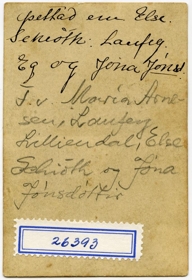 Else
Schiöth. Laufey.
Eg og Jóna Jóns.
T.v. María Arne-
sen, Laufey
Lilliendal, Else
Schiöth og Jóna
Jónsdóttir
26393